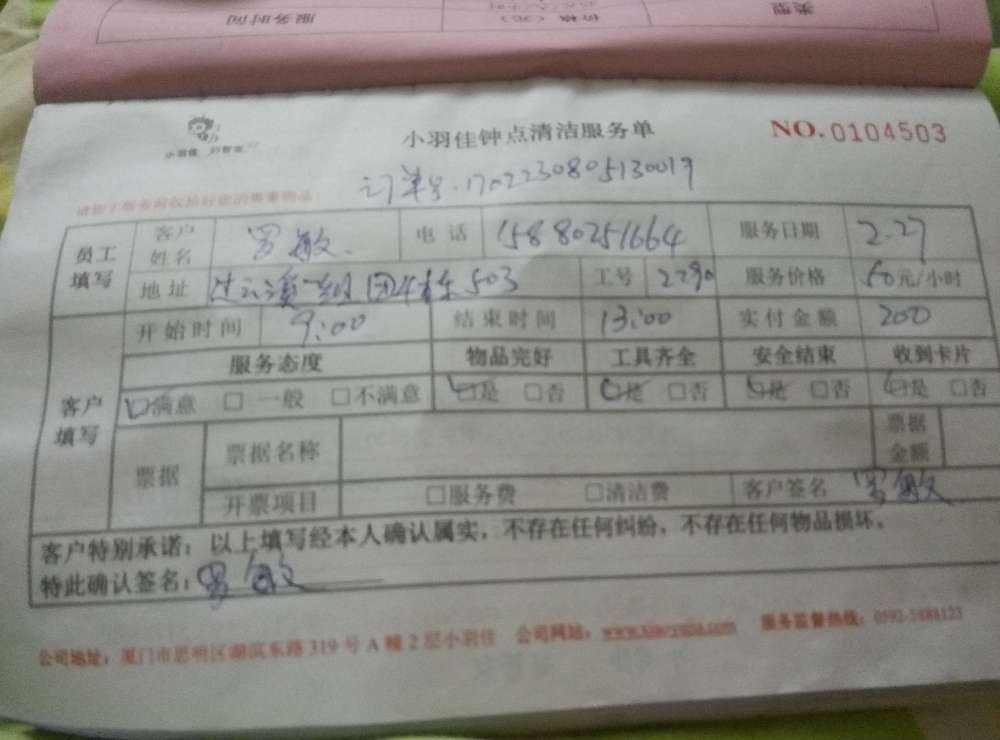 服务时间 价格（元） 类型
小羽佳
小羽佳钟点清洁服务单 NO.0104503
订单号.1702230805130019
员工填写 客户姓名 罗敏. 电话 15880251664 服务日期 2.27
地址 503 工号 2290 服务价格 50元/小时
客户填写 开始时间 9:00 结束时间 13:00 实付金额 200
服务态度 物品完好 工具齐全 安全结束 收到卡片
□满意 □一般 □不满意 □是 □否 □是 □否 □是 □否 □是 □否
票据 票据名称 票据金额
开票项目 □服务费 □清洁费 客户签名 罗敏
客户特别承诺：以上填写经本人确认属实，不存在任何纠纷，不存在任何物品损坏。
特此确认签名：罗敏
公司地址：厦门市思明区湖滨东路319号A幢2层小羽佳 公司网站： 服务监督热线：0592-5888123